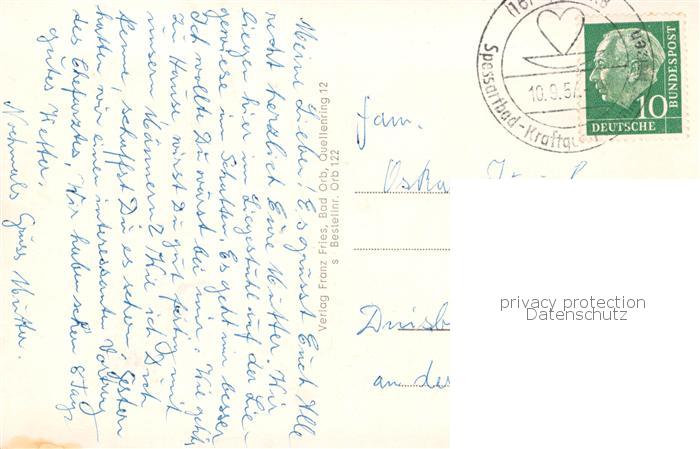 Meine Lieben! Es grüsst Euch Alle
recht herzlich Eure Mutter. Wir
liegen hier im Liegestuhl auf der Lie-
gewiese im Schatten. Es geht mir besser
Ich wollte Du wärst bei mir. Wie geht's
zu Hause wirst Du gut fertig mit
unsern Männern? Wie ich Dich
kenne, schaffst Du es schon. Gestern
hatten wir einen interessanten Vortrag
des Chefarztes. Wir haben schon 8 Tage
gutes Wetter.
Nochmals Gruss Mutter.
Verlag Franz Fries, Bad Orb, Quellenring 12
s Bestellnr. Orb 122
Fam.
Oska
Duisb
an de
Spessartbad-Kraftqu
10.9.57
10
DEUTSCHE
BUNDESPOST
privacy protection
Datenschutz